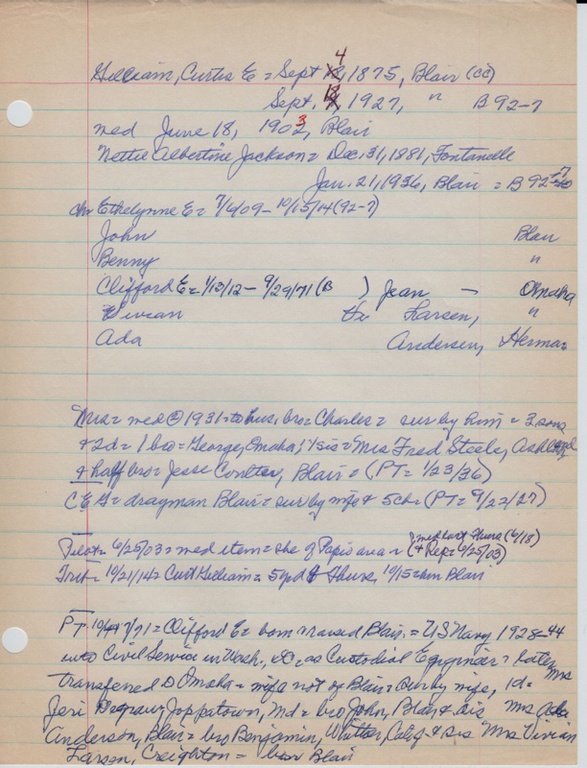 Gilliam, Curtis E = Sept 4, 1875, Blair (cc)
Sept, 1927, " B 92-7
med June 18, 1903, Blair
Nettie Albertine Jackson = Dec. 31, 1881, Fontanelle
Jan. 21, 1936, Blair = B 92-7
ch Ethelynne E = 7/4/09 - 10/15/14 (92-7)
John Blair
Benny "
Clifford E = 1/13/12 - 9/29/71 (B ) Jean — Omaha
Vivian Larsen, "
Ada Andersen, Herman
Mrs = med @ 1931 = to hus. bro = Charles = sur by him = 3 sons
+ 2d = 1 bro = George, Omaha; 1 sis = Mrs Fred Steele, Ashland
+ half bro = Jesse Coulter, Blair = (PT = 1/23/36)
C E G = drayman Blair = sur by wife + 5 ch = (PT = 9/22/27)
Pilot = 6/25/03 = med item = she of Papio area = (med last Thurs (6/18) + Rep = 6/25/03)
10/21/14 = Curt Gilliam = 5 yr d Thurs, 10/15 = hm Blair
PT 10/7/71 = Clifford E = born + raised Blair. = US Navy 1928-44
into Civil Service in Wash., DC = as Custodial Engineer = later
transferred Omaha = wife not of Blair = sur by wife, 1d = Mrs
Jeri Degraw, Joppatown, Md = bro John, Blair, + sis Mrs Ada
Anderson, Blair = bro Benjamin, Whittier, Calif + sis Mrs Vivian
Larson, Creighton = Blair